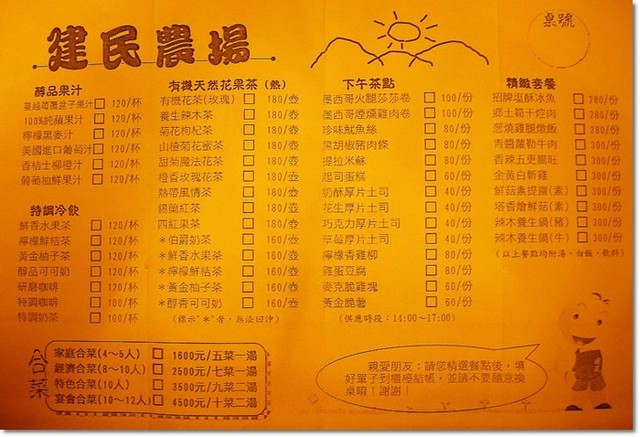 建民農場
桌號
醇品果汁
蔓越莓覆盆子果汁 □ 120/杯
100%純蘋果汁 □ 120/杯
檸檬黑麥汁 □ 120/杯
美國進口葡萄汁 □ 120/杯
香桔士柳橙汁 □ 120/杯
葡萄柚鮮果汁 □ 120/杯
特調冷飲
鮮香水果茶 □ 120/杯
檸檬鮮桔茶 □ 120/杯
黃金柚子茶 □ 120/杯
醇品可可奶 □ 120/杯
研磨咖啡 □ 120/杯
特調咖啡 □ 100/杯
特調奶茶 □ 100/杯
有機天然花果茶(熱)
有機花茶(玫瑰) □ 180/壺
養生辣木茶 □ 180/壺
菊花枸杞茶 □ 180/壺
山楂菊花蜜茶 □ 180/壺
甜菊魔法花茶 □ 180/壺
橙香玫瑰花茶 □ 180/壺
熱帶風情茶 □ 180/壺
錫蘭紅茶 □ 180/壺
四紅果茶 □ 180/壺
*伯爵奶茶 □ 160/壺
*鮮香水果茶 □ 160/壺
*檸檬鮮桔茶 □ 160/壺
*黃金柚子茶 □ 160/壺
*醇香可可奶 □ 160/壺
(標示"*"者,無法回沖)
下午茶點
墨西哥火腿莎莎卷 □ 100/份
墨西哥煙燻雞肉卷 □ 100/份
珍味魷魚絲 □ 80/份
黑胡椒豬肉條 □ 80/份
提拉米蘇 □ 80/份
起司蛋糕 □ 60/份
奶酥厚片土司 □ 40/份
花生厚片土司 □ 40/份
巧克力厚片土司 □ 40/份
草莓厚片土司 □ 40/份
檸檬香雞柳 □ 80/份
雞蛋豆腐 □ 80/份
麥克脆雞塊 □ 60/份
黃金脆薯 □ 60/份
(供應時段:14:00~17:00)
精緻套餐
招牌塩酥冰魚 □ 280/份
鄉土筍干焢肉 □ 280/份
蔥燒雞腿燉飯 □ 280/份
青醬蘿勒牛肉 □ 300/份
香辣五更腸旺 □ 300/份
金黃白斬雞 □ 300/份
鮮菇素提齋(素) □ 300/份
塔香燴鮮菇(素) □ 300/份
辣木養生鍋(豬) □ 300/份
辣木養生鍋(牛) □ 300/份
(以上餐點均附湯、白飯、飲料)
合菜
家庭合菜(4~5人) □ 1600元/五菜一湯
經濟合菜(8~10人) □ 2500元/七菜一湯
特色合菜(10人) □ 3500元/九菜二湯
宴會合菜(10~12人) □ 4500元/十菜二湯
親愛朋友:請您精選餐點後,填
好單子到櫃檯結帳,並請不要隨意換
桌嘀!謝謝!